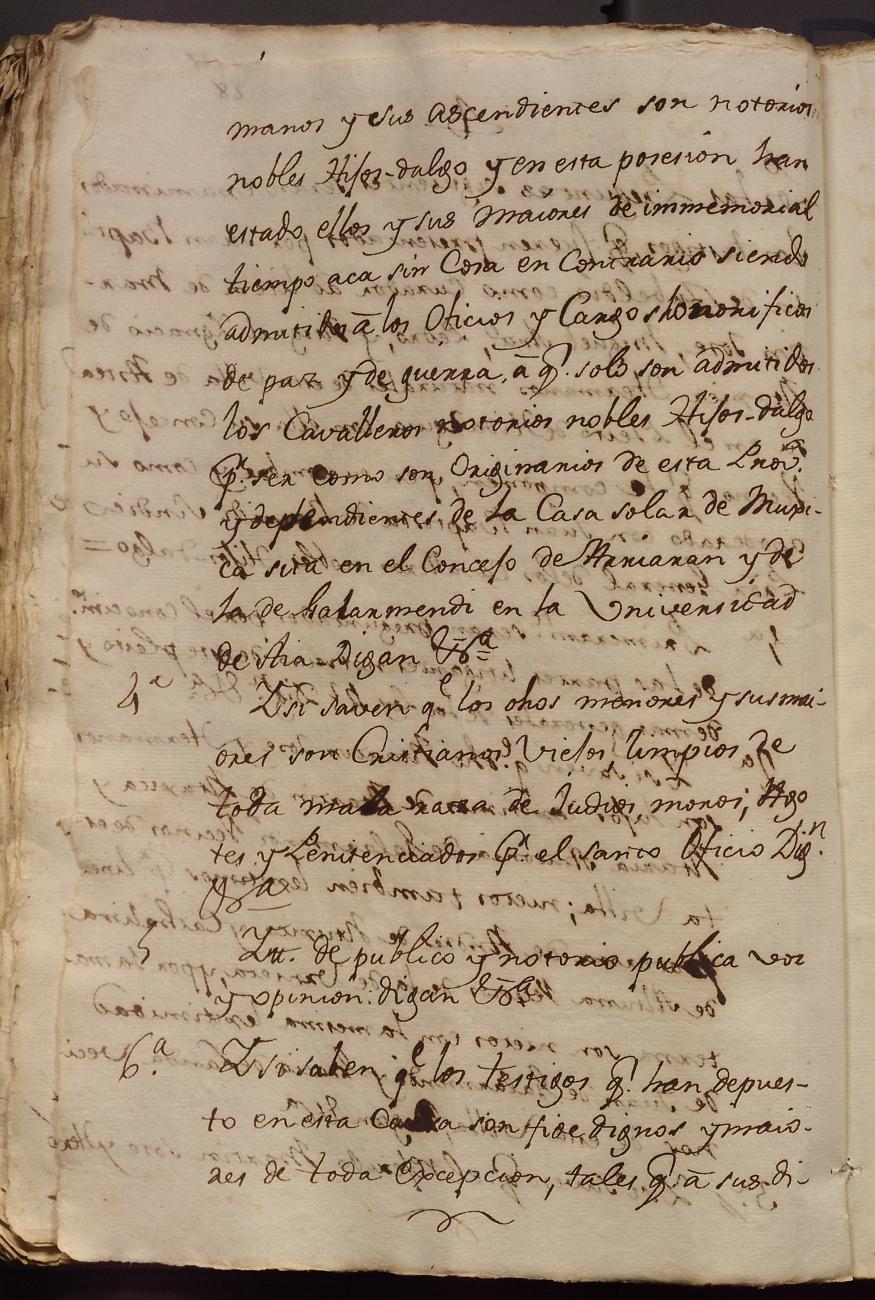 manos y sus ascendientes son notorios
nobles Hijos-dalgo y en esta posesion han
estado ellos y sus maiores de immemorial
tiempo aca sin Cosa en Contrario siendo
admitidos â los Oficios y Cargos honorificos
de paz y de guerra, â q.^e solo son admitidos
los Cavalleros notorios nobles Hijos-dalgo
p.^r ser como son, Originarios de esta Prov.^a
y dependientes de la Casa solar de Muxi-
ca sita en el Concejo de Arriaran y de
la de Galarmendi en la Universidad
de Atia Digan &^a
4^a Y si saven q^e los dhos menores y sus mai-
ores son Cristianos Viejos, limpios de
toda mala raza de Judios, moros, Ago
tes y Penitenciados p.^r el santo Oficio Dig.^n
&^a
5 Ytt. de publico y notorio publica voz
y opinion: digan &^a
6.^a Y si saben q^e los testigos q.^e han depues-
to en esta Causa son fidedignos y maio-
res de toda excepcion, tales q.^e â sus di-